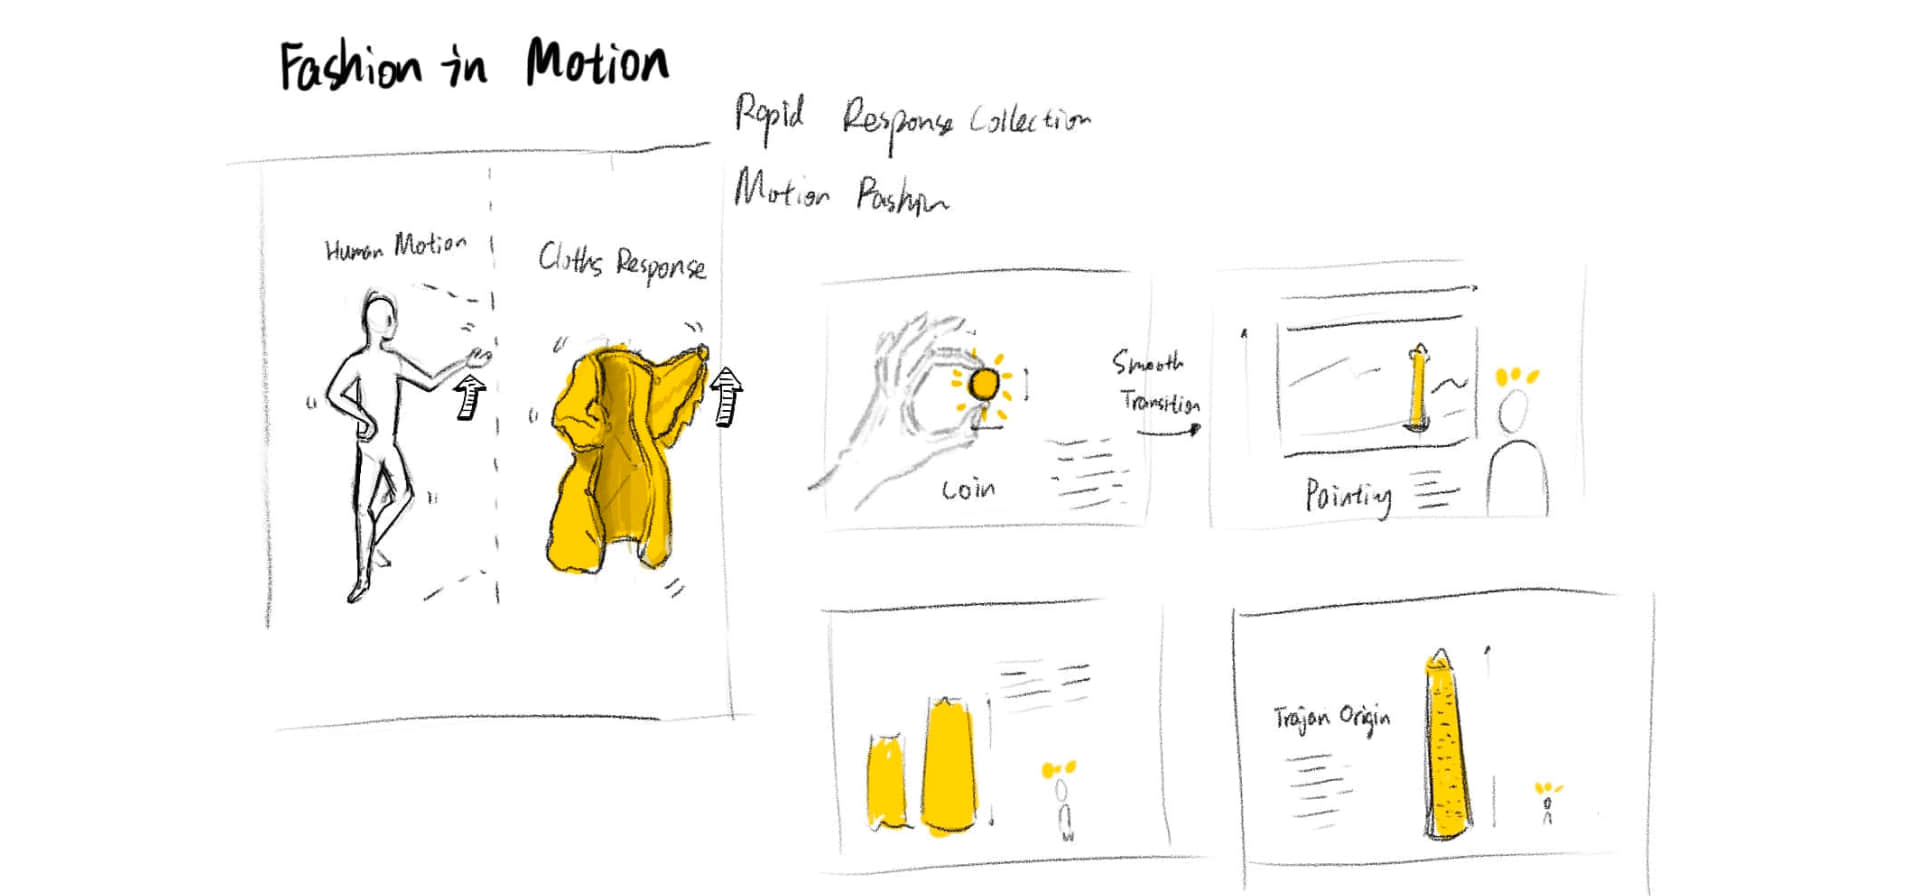 Fashion in Motion
Rapid Response Collection
Motion Fashion
Human Motion
Cloths Response
Coin
Smooth
Transition
Painting
Trajan Origin